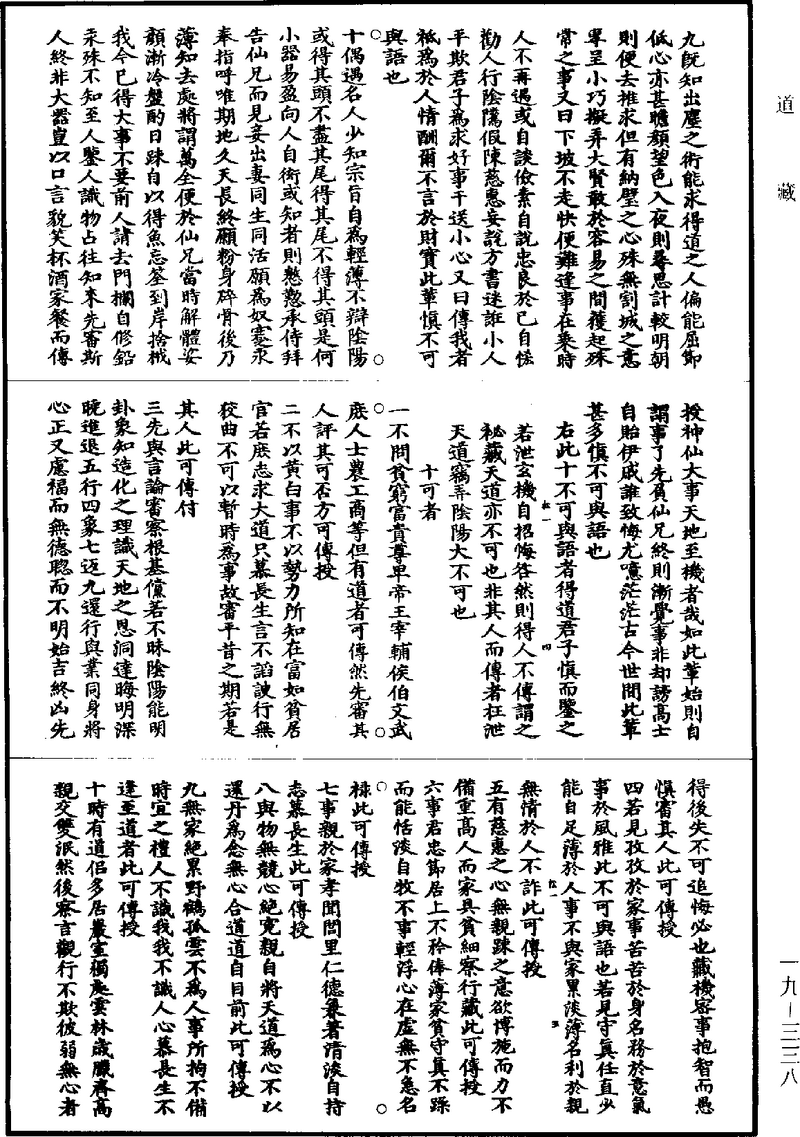 道藏
九旣知出塵之術能求得道之人偏能屈節
低心亦甚瞻顏望色入夜則尋思計較明朝
則便去推求但有納璧之心殊無割城之意
單呈小巧擬弄大賢敢於容易之間獲起殊
常之事又曰下坡不走快便難逢事在乘時
人不再遇或自談儉素自說忠良於已自恠
勸人行陰隲假陳慈惠妄說方書迷誑小人
平欺君子為求好事干送小心又曰傳我者
祇為於人情酬爾不言於財寶此輩慎不可
與語也
十偶遇名人少知宗旨自為輕薄不辯陰陽
或得其頭不盡其尾得其尾不得其頭是何
小器易盈向人自衒或知者則慇懃承侍拜
告仙兄而見妾出妻同生同活願為奴蹇永
奉指呼唯期地久天長終願粉身碎骨後乃
薄知去處將謂萬全便於仙兄當時解體姿
顏漸冷盤酌日踈自以得魚忘筌到岸捨栰
我今已得大事不要前人請去門欄自修鉛
汞殊不知至人鑒人識物占往知來先審斯
人終非大器豈以口言貌笑杯酒家餐而傳
授神仙大事天地至機者哉如此輩始則自
謂事了先負仙兄終則漸覺事非却謗高士
自貽伊戚誰致悔尤噫茫茫古今世間此輩
甚多慎不可與語也
右此十不可與語者得道君子慎而鑒之
若泄玄機自招悔咎然則得人不傳謂之
祕藏天道亦不可也非其人而傳者枉泄
天道竊弄陰陽大不可也
十可者
一不問貧窮富貴尊卑帝王宰輔侯伯文武
庶人士農工商等但有道者可傳然先審其
人評其可否方可傳授
二不以黃白事不以勢力所知在富如貧居
官若庶志求大道只慕長生言不諂諛行無
狡曲不可以暫時為事故審平昔之期若是
其人此可傳付
三先與言論審察根基儻若不昧陰陽能明
卦象知造化之理識天地之恩洞達晦明深
曉進退五行四象七返九還行與業同身將
心正又慮福而無德聦而不明始吉終凶先
得後失不可追悔必也藏機密事抱智而愚
慎審其人此可傳授
四若見孜孜於家事苦苦於身名務於意氣
事於風雅此不可與語也若見守真任直少
能自足薄於人事不與家累淡薄名利於親
無情於人不詐此可傳授
五有慈惠之心無親踈之意欲博施而力不
備重高人而家具貧細察行藏此可傳授
六事君忠節居上不矜俸薄家貧守真不躁
而能恬淡自牧不事輕浮心在虛無不急名
祿此可傳授
七事親於家孝聞閭里仁德兼著清淡自持
志慕長生此可傳授
八與物無競心絕冤親自將天道為心不以
還丹為念無心合道道自目前此可傳授
九無家絕累野鶴孤雲不為人事所拘不備
時宜之禮人不識我我不識人心慕長生不
逢至道者此可傳授
十時有道侶多居巖室獨處雲林歲臘齊高
親交雙泯然後察言觀行不欺彼弱無心者
一九－三三八